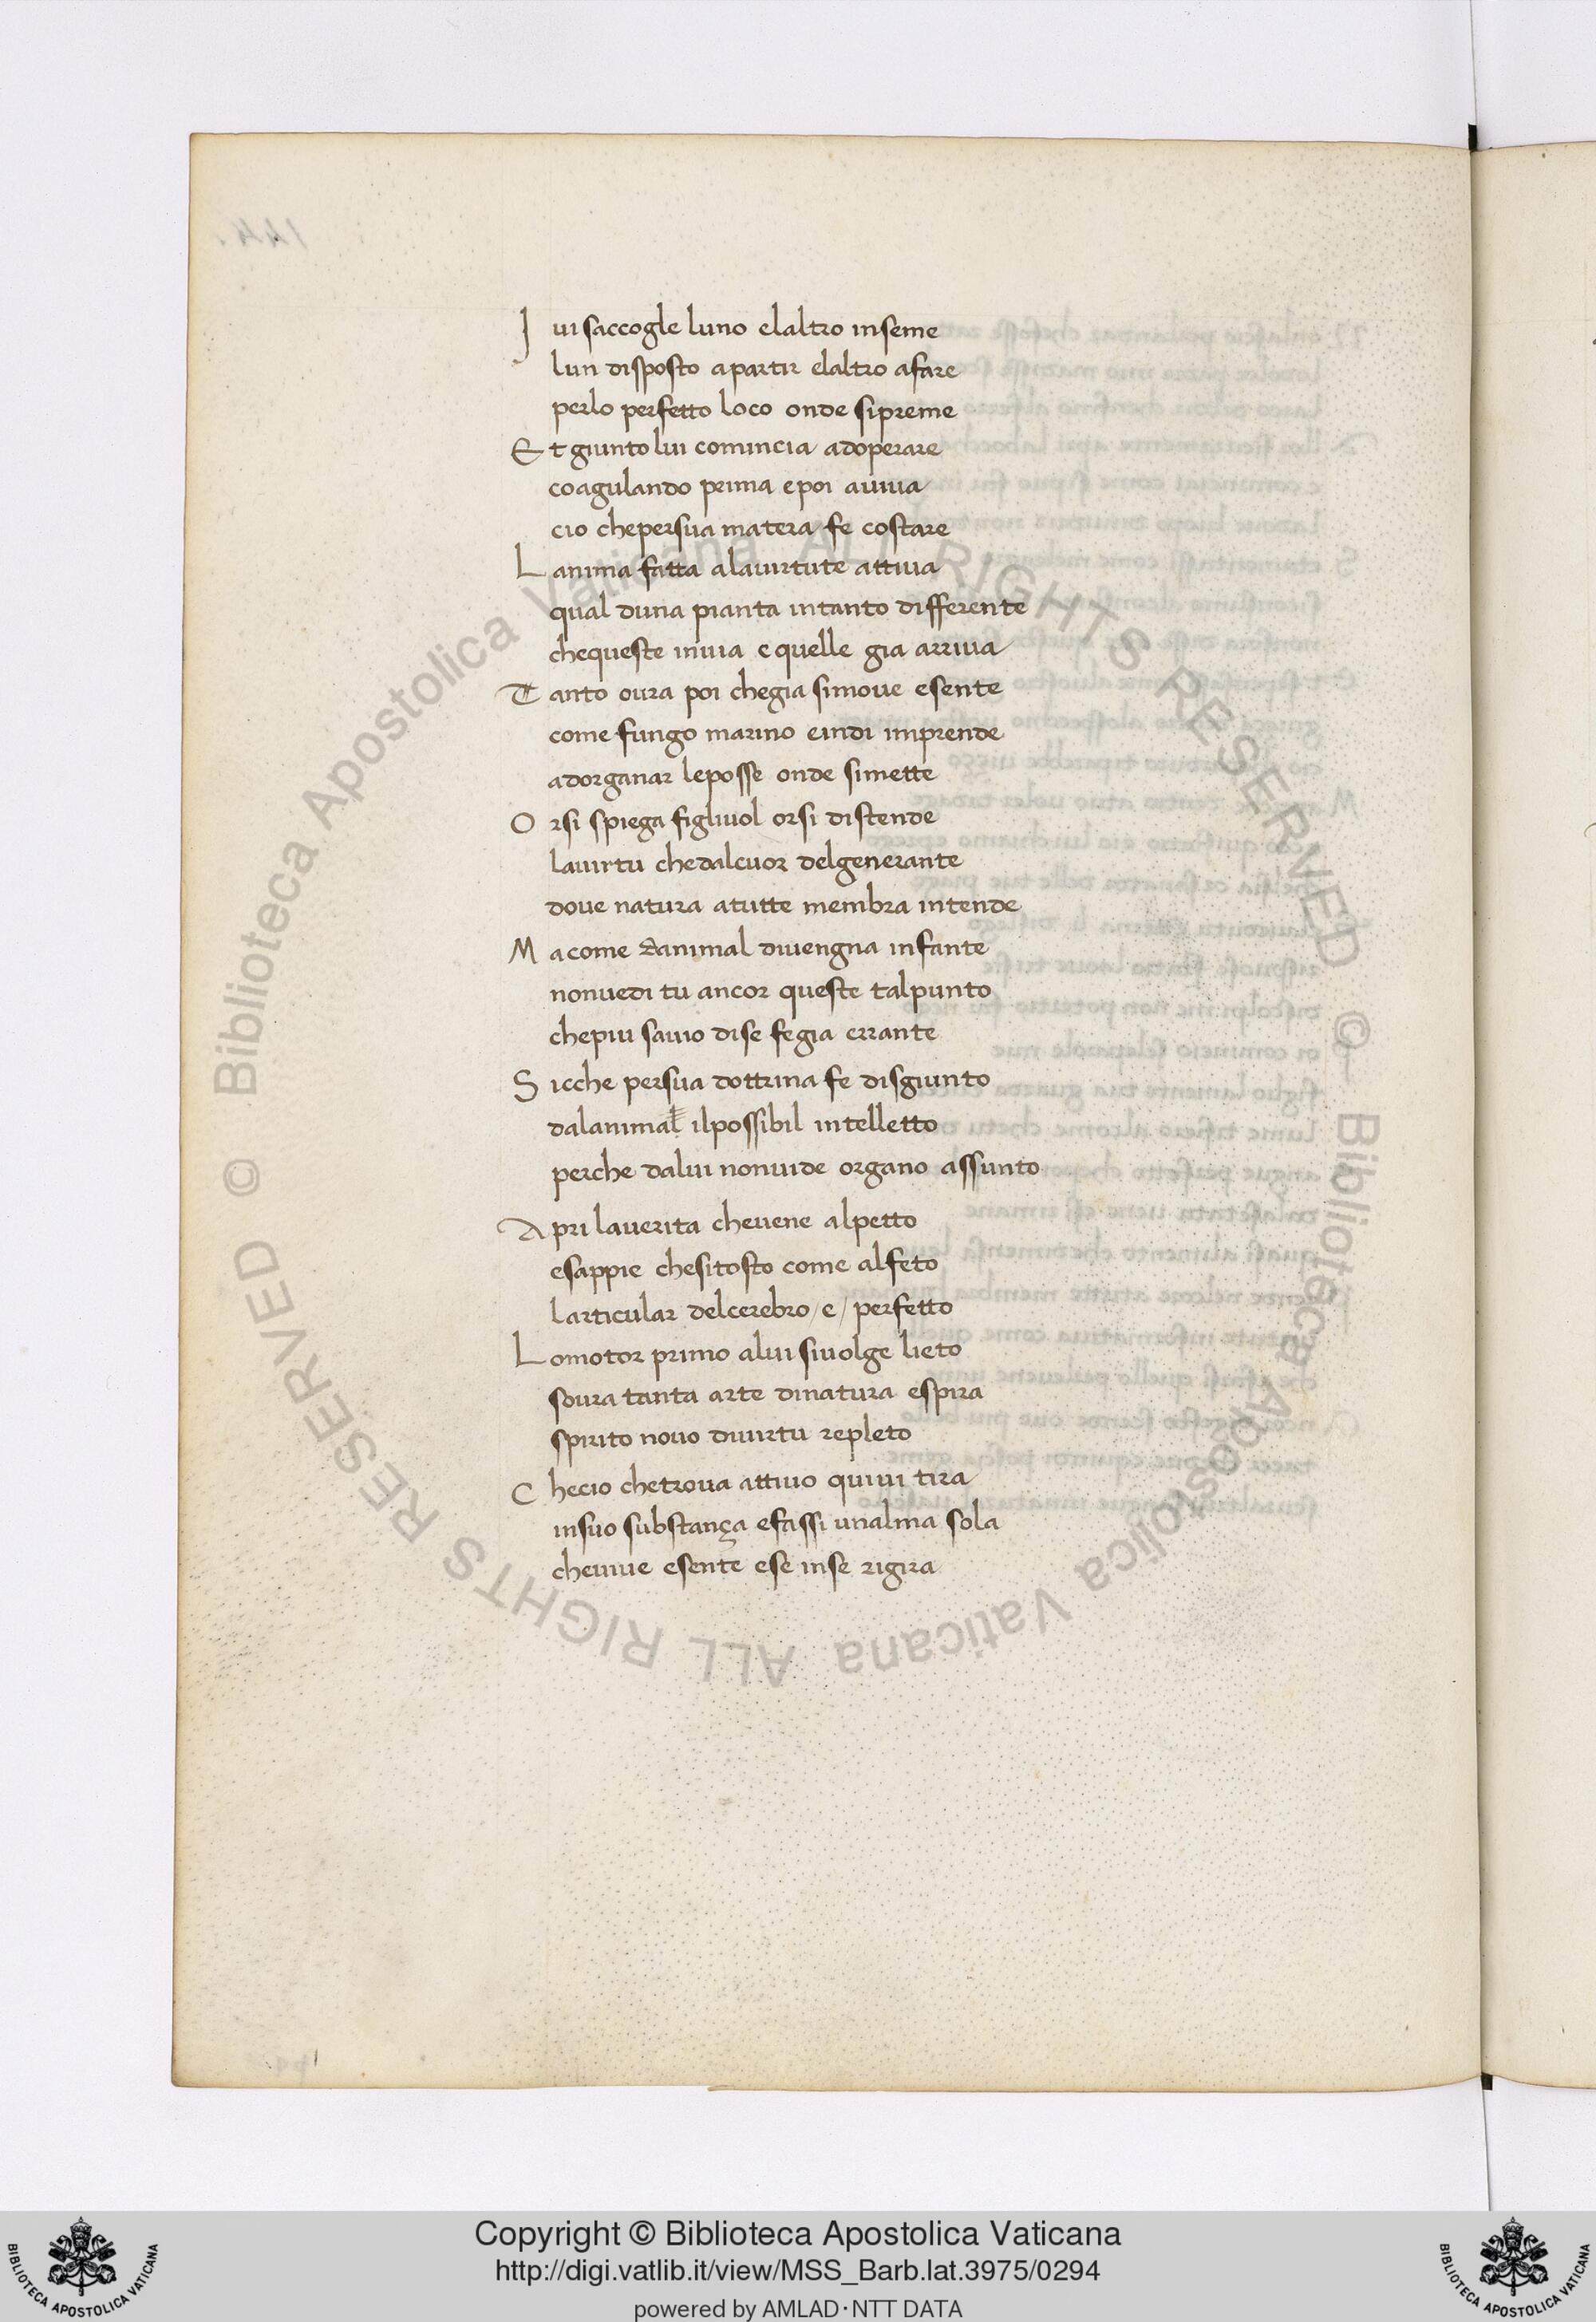 I vi saccogle luno elaltro inseme
lun disposto apartir elaltro afare
perlo perfetto loco onde sipreme
E t giunto lui comincia adoperare
coagulando prima epoi aviva
cio chepersua matera fe costare
L anima fatta alavirtute attiva
qual duna pianta intanto differente
chequeste invia e quelle gia arriva
T anto ovra poi chegia simove esente
come fungo marino eindi imprende
adorganar leposse onde simette
O rsi spiega figliuol orsi distende
lavirtu chedalcuor delgenerante
dove natura atutte membra intende
M acome danimal divengna infante
nonvedi tu ancor queste talpunto
chepiu savio dise fegia errante
S icche persua dottrina fe disgiunto
dalanimal ilpossibil intelletto
perche dalui nonvide organo assunto
A pri laverita chevene alpetto
esappie chesitosto come alfeto
larticular delcerebro/e/perfetto
L omotor primo alui sivolge lieto
sovra tanta arte dinatura espira
spirito novo divirtu repleto
C hecio chetrova attivo quivi tira
insuo substança efassi unalma sola
chevive esente ese inse rigira
Copyright © Biblioteca Apostolica Vaticana
http://digi.vatlib.it/view/MSS_Barb.lat.3975/0294
powered by AMLAD·NTT DATA
BIBLIOTECA APOSTOLICA VATICANA
BIBLIOTECA APOSTOLICA VATICANA
© Biblioteca Apostolica Vaticana ALL RIGHTS RESERVED © Biblioteca Apostolica Vaticana ALL RIGHTS RESERVED